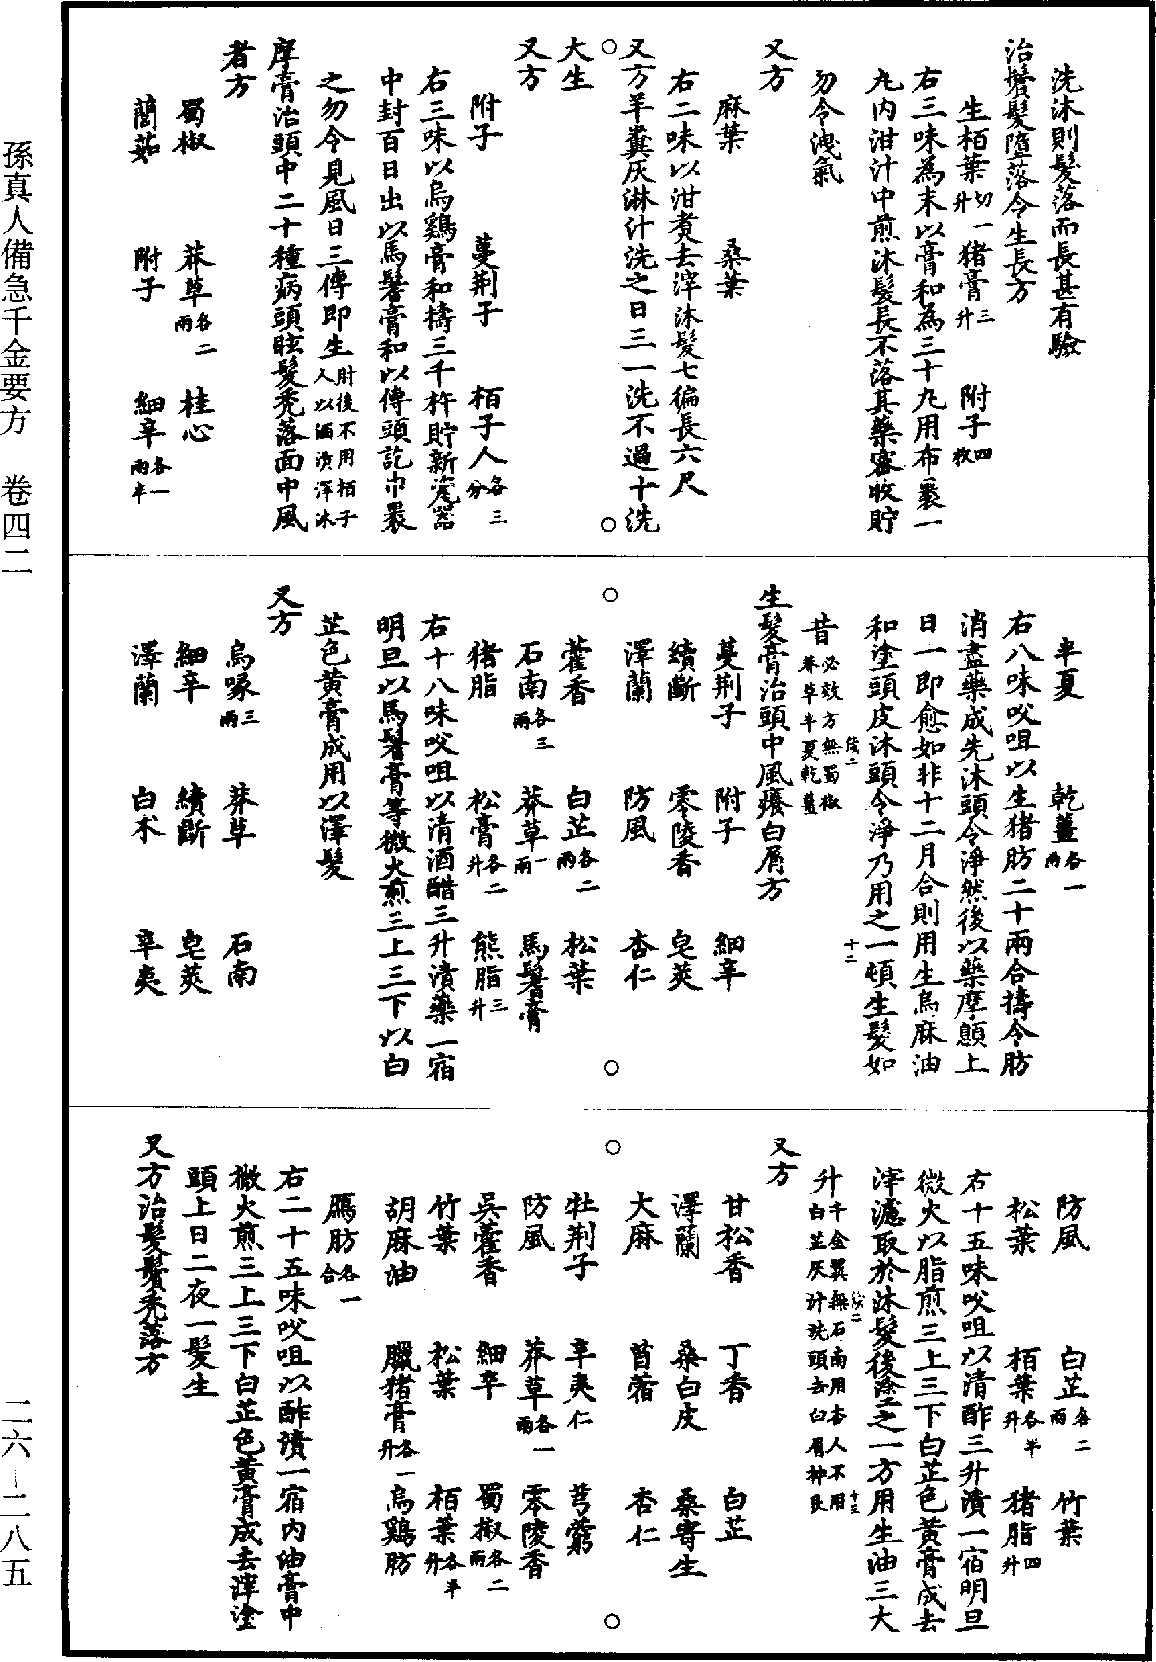 洗沐則髮落而長甚有驗
治鬢髮墮落令生長方
生栢葉切一升 猪膏三升 附子四枚
右三味為末以膏和為三十丸用布裹一
丸內泔汁中煎沐髮長不落其藥密收貯
勿令洩氣
又方
麻葉 桑葉
右二味以泔煑去滓沐髮七徧長六尺
又方羊糞灰淋汁洗之日三一洗不過十洗
大生
又方
附子 蔓荆子 栢子人各三分
右三味以烏鷄膏和擣三千杵貯新瓷器
中封百日出以馬鬐膏和以傅頭訖巾裹
之勿令見風日三傅即生肘後不用栢子人以酒漬澤沐
摩膏治頭中二十種病頭眩髮禿落面中風
者方
蜀椒 莽草各二兩 桂心
䕡茹 附子 細辛各一兩半
半夏 乾薑各一兩
右八味㕮咀以生猪肪二十兩合擣令肪
消盡藥成先沐頭令淨然後以藥摩顖上
日一即愈如非十二月合則用生烏麻油
和塗頭皮沐頭令淨乃用之一頓生髮如
昔必效方無蜀椒莽草半夏乾薑
後二 十二
生髮膏治頭中風癢白屑方
蔓荆子 附子 細辛
續斷 零陵香 皂莢
澤蘭 防風 杏仁
藿香 白芷各二兩 松葉
石南各三兩 莽草一兩 馬鬐膏
猪脂 松膏各二升 熊脂三升
右十八味㕮咀以清酒醋三升漬藥一宿
明旦以馬鬐膏等微火煎三上三下以白
芷色黄膏成用以澤髮
又方
烏喙三兩 莽草 石南
細辛 續斷 皂莢
澤蘭 白术 辛夷
防風 白芷各二兩 竹葉
松葉 栢葉各半升 猪脂四升
右十五味㕮咀以清酢三升漬一宿明旦
微火以脂煎三上三下白芷色黄膏成去
滓濾取於沐髮後塗之一方用生油三大
升千金翼無石南用杏人不用白芷灰汁洗頭去白屑神良
後二 十三
又方
甘松香 丁香 白芷
澤蘭 桑白皮 桑寄生
大麻 苜蓿 杏仁
牡荆子 辛夷仁 芎藭
防風 莽草各一兩 零陵香
吳藿香 細辛 蜀椒各二兩
竹葉 松葉 栢葉各半升
胡麻油 臘猪膏各一升 烏鷄肪
鴈肪各一合
右二十五味㕮咀以酢漬一宿內油膏中
微火煎三上三下白芷色黄膏成去滓塗
頭上日二夜一髮生
又方治髮鬢禿落方
孫真人備急千金要方 卷四二
二六—二八五